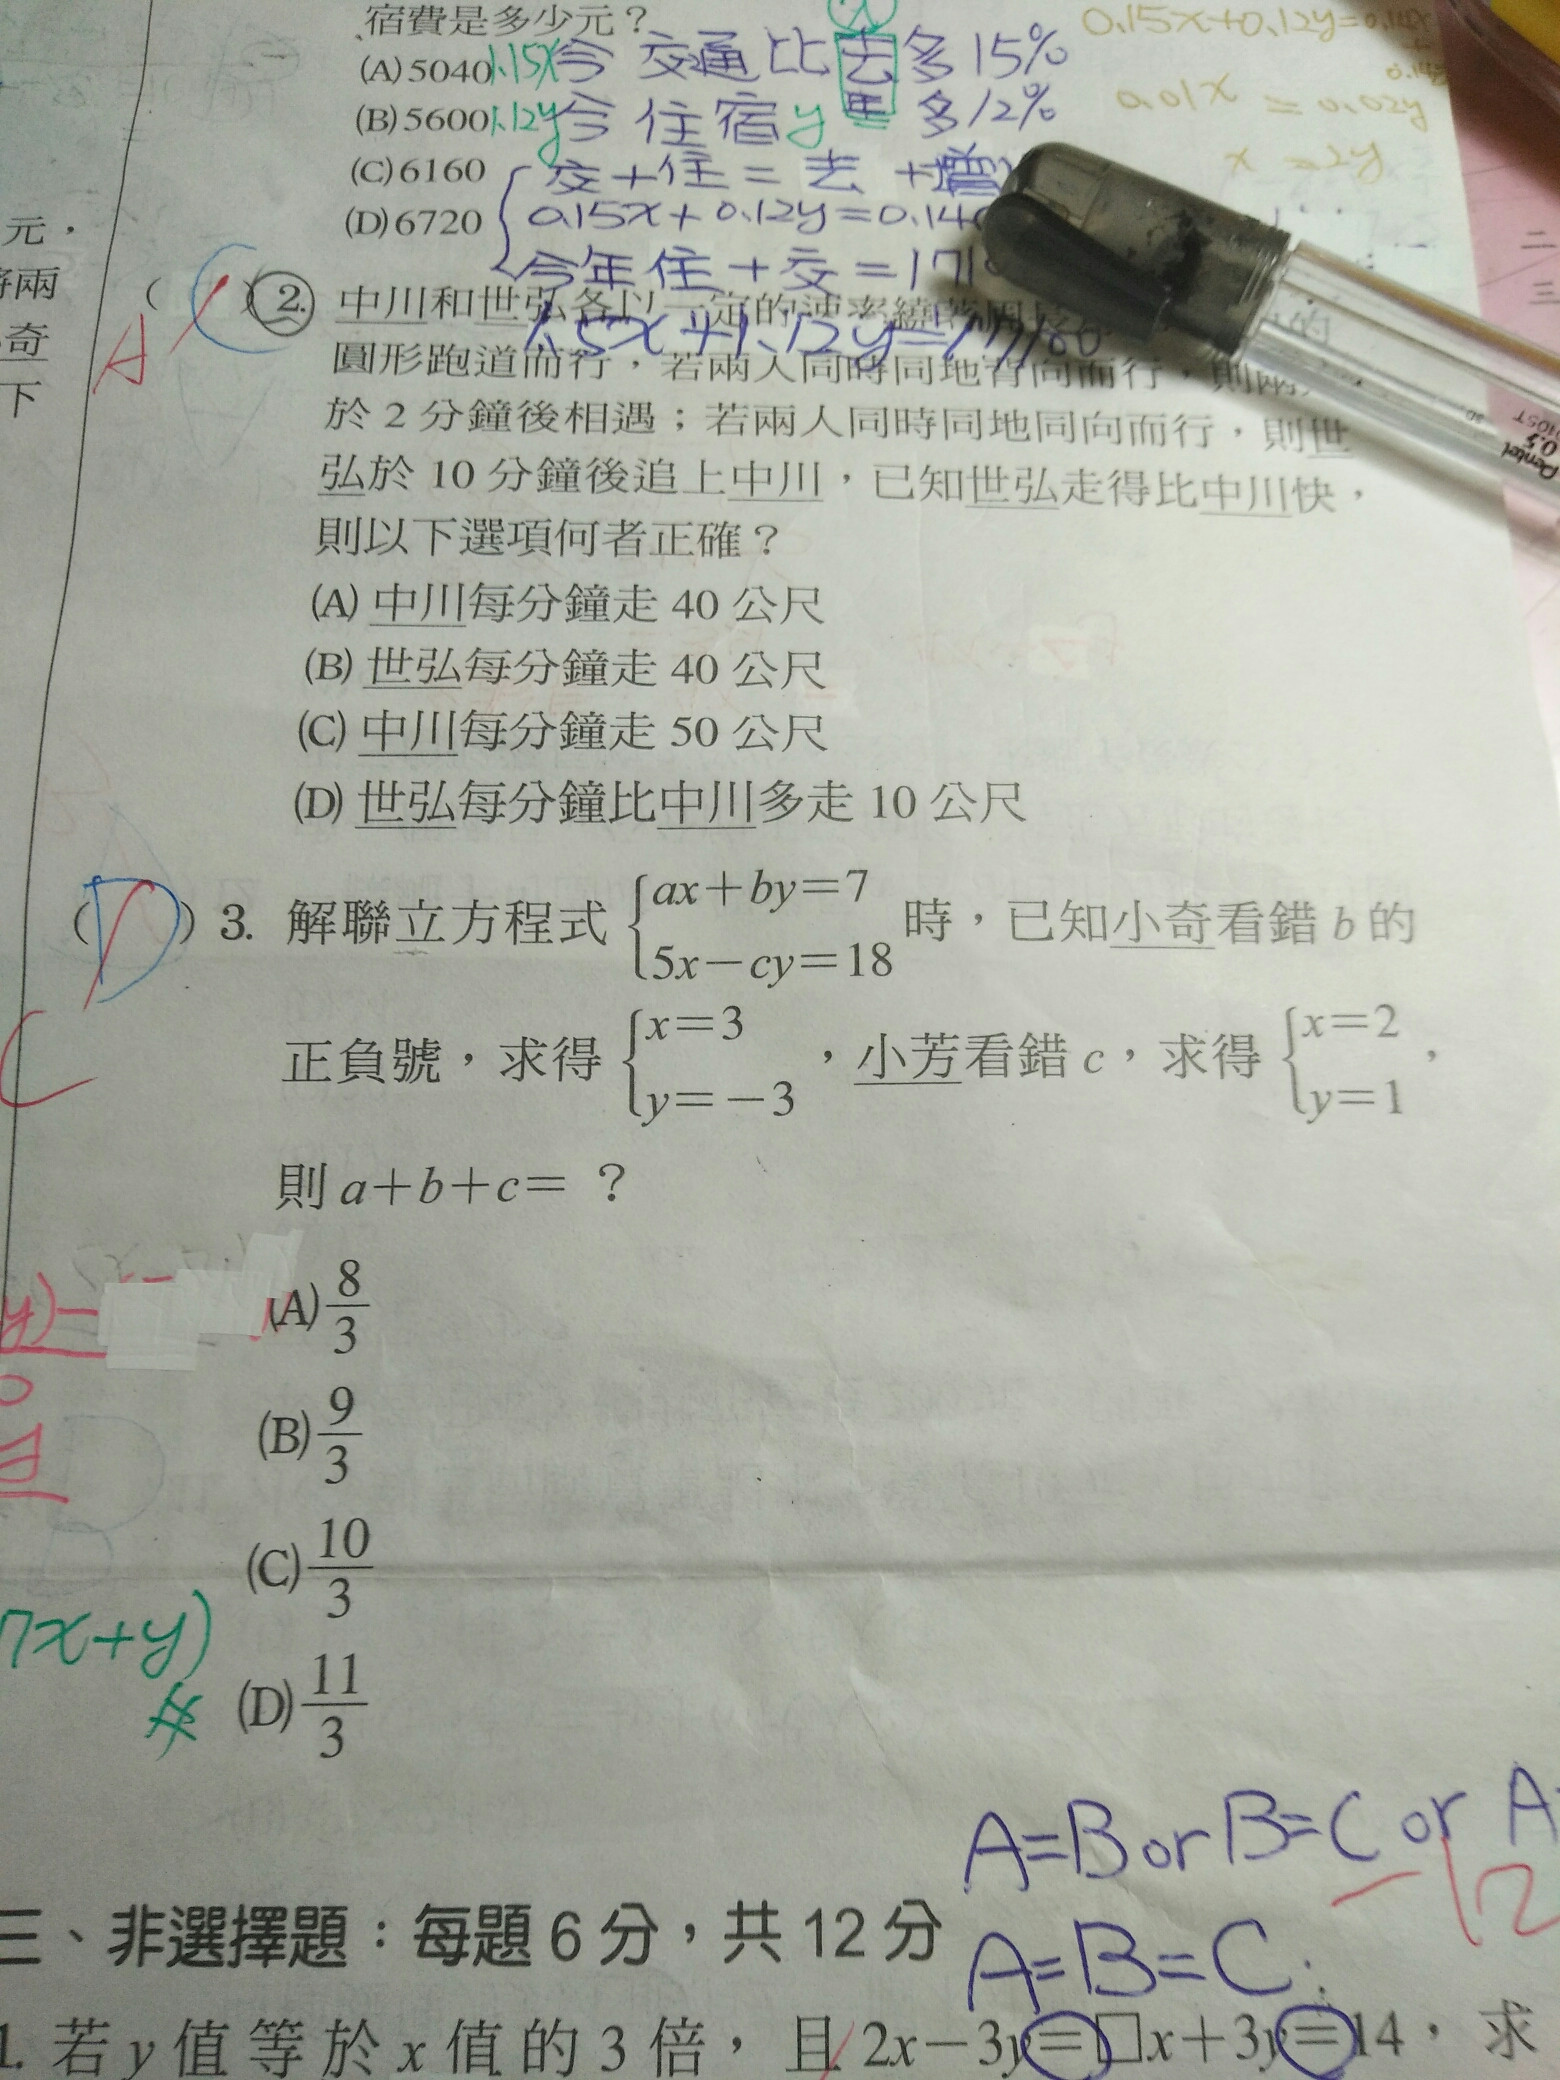 宿費是多少元？
(A)5040 1.15x 今 交通 比 去 多 15%
(B)5600 1.12y 今 住宿 y 多 12%
(C)6160 交+住=去+增
(D)6720 0.15x+0.12y=0.14
今年住+交=171
0.15x+0.12y=
0.01x=0.02y
x=2y
元，
兩
奇
下
A
( ) 2. 中川和世弘各以一定的速率繞著
的
圓形跑道而行，若兩人同時同地背向而行，則兩
於 2 分鐘後相遇；若兩人同時同地同向而行，則世
弘於 10 分鐘後追上中川，已知世弘走得比中川快，
則以下選項何者正確？
(A) 中川每分鐘走 40 公尺
(B) 世弘每分鐘走 40 公尺
(C) 中川每分鐘走 50 公尺
(D) 世弘每分鐘比中川多走 10 公尺
(D) 3. 解聯立方程式 {ax+by=7
5x−cy=18 時，已知小奇看錯 b 的
C
正負號，求得 {x=3
y=−3 ，小芳看錯 c，求得 {x=2
y=1 ，
則 a+b+c= ？
(A) 8/3
(B) 9/3
(C) 10/3
(D) 11/3
y)−
7x+y)
A=B or B=C or A
−12
三、非選擇題：每題 6 分，共 12 分
A=B=C
1. 若 y 值等於 x 值的 3 倍，且 2x−3y=□x+3y=14，求
Pentel
0.5